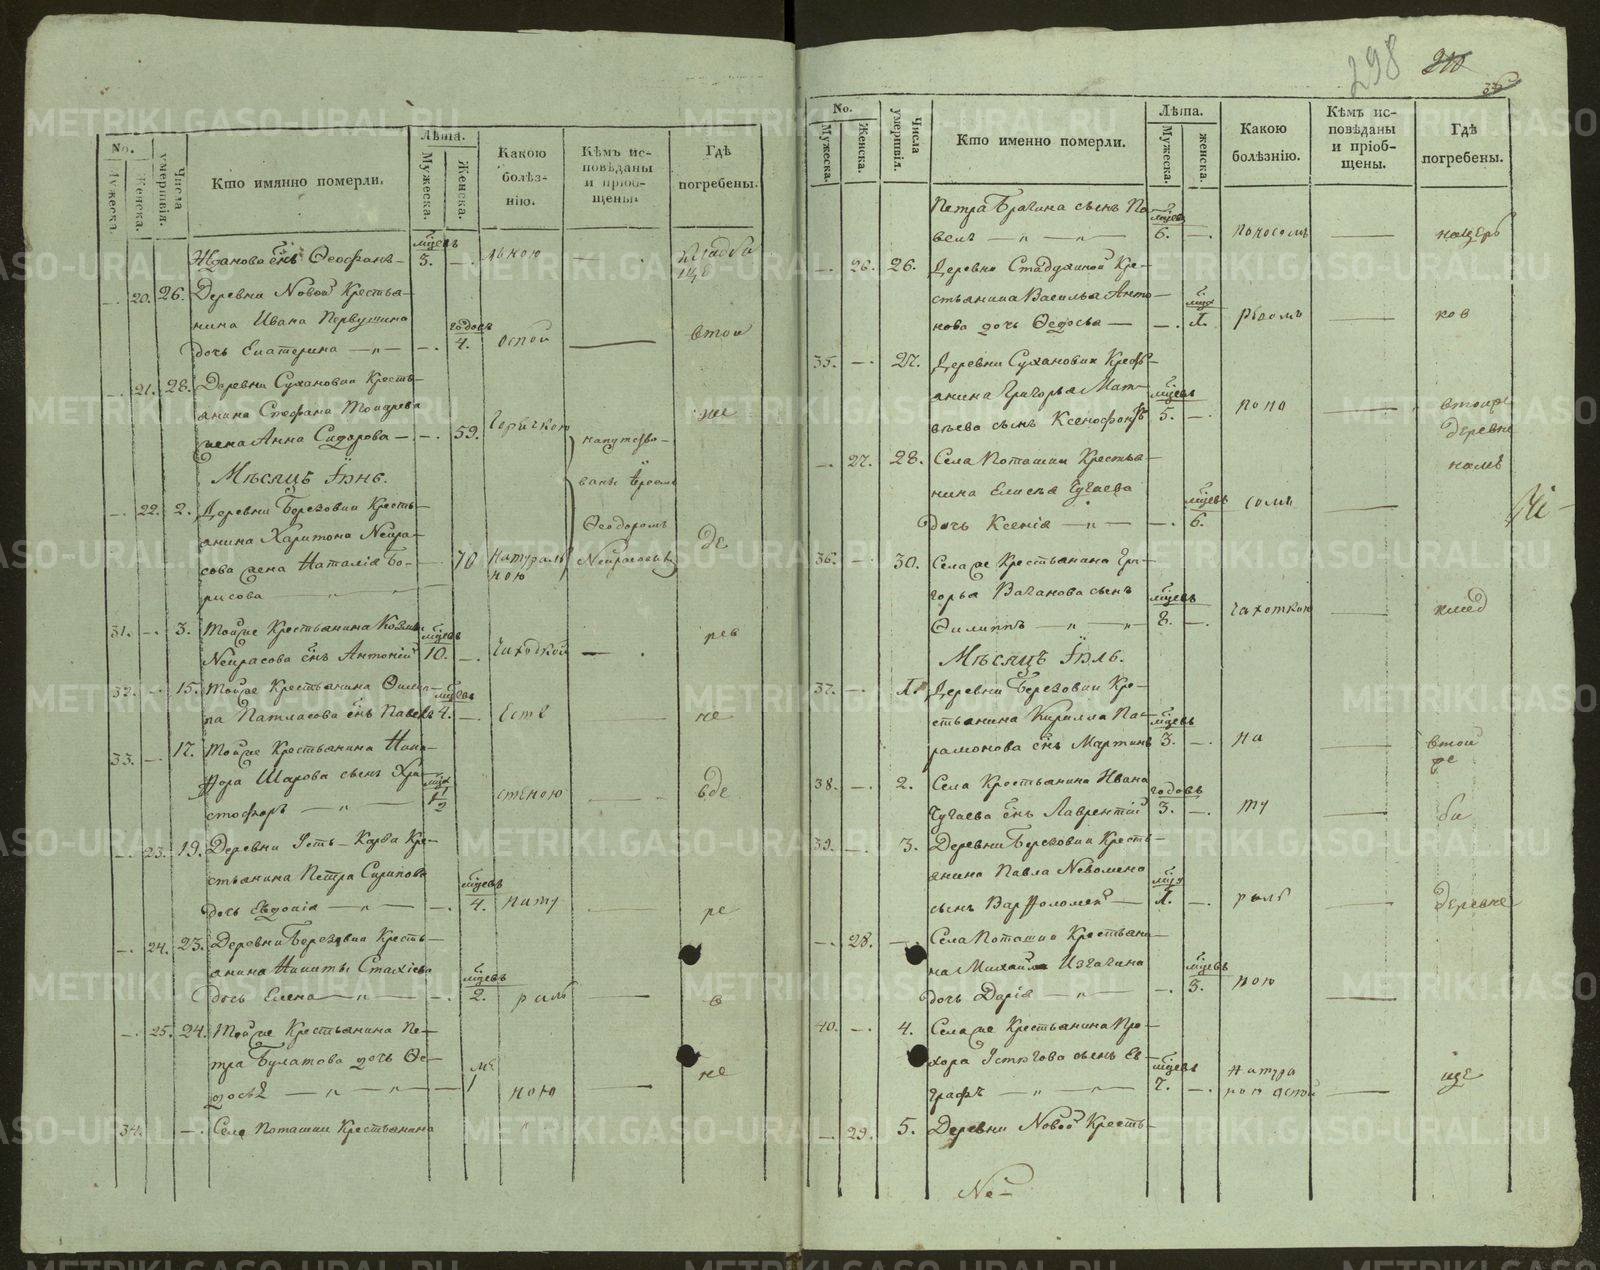 No.
Мужеска.
Женска.
Числа умершвія.
Кто имянно померли.
Лѣта.
Мужеска.
Женска.
Какою болѣз-
нію.
Кѣмъ ис-
повѣданы
и пріоб-
щены.
Гдѣ
погребены.
Жданова сн҃ъ Ѳеофанъ — мцевъ 5. —. льною — кладби
щѣ
—. 20. 26. Деревни Новой Крестья-
нина Ивана Первушина
дочь Екатерина —„— —. годовъ 4. оспой — втой
—. 21. 28. Деревни Сухановки Кресть-
анина Стефана
жена Анна Сидорова —. —. 59. Горячкою же
напутство-
Мѣсяцъ Іюнь.
ваны Іереемъ
—. 22. 2. Деревни Березовки Кресть-
Ѳеодоромъ
анина Харитона Некра-
сова жена Наталія Бо-
рисова —„— 70 Натураль
ною Некрасовымъ де
31. —. 3. Тойже Крестьянина Козмы
Некрасова сн҃ъ Антоній мцевъ 10. —. Чахоткой — рев
32. —. 15. Тойже Крестьянина Филип-
па Патласова сн҃ъ Павелъ мцевъ 4. —. Есте — не
33. —. 17. Тойже Крестьянина Ника-
нора Шарова сынъ Хри-
стофоръ —„— мца 1 1/2 ственою — вде
—. 23. 19. Деревни Усть-Карба Кре-
стьянина Петра Сирипова
дочь Евдокія —„— —. мцевъ 4. нату — ре
—. 24. 23. Деревни Березовки Кресть-
анина Никиты Стахіева
дочь Елена —„— —. мцевъ 2. раль — в
—. 25. 24. Тойже Крестьянина Пе-
тра Булатова дочь Ѳе-
досья —„— — мс 1 ною — не
34. —. Села Поташки Крестьянина
298
No.
Мужеска.
Женска.
Числа умершвія.
Кто именно померли.
Лѣта.
Мужеска.
женска.
Какою
болѣзнію.
Кѣмъ ис-
повѣданы
и пріоб-
щены.
Гдѣ
погребены.
Петра Брагина сынъ Па-
велъ —„—„— мцевъ 6. —. поносомъ — нацерь
—. 26. 26. Деревни Стадухиной Кре-
стьянина Василья Анто-
нова дочь Ѳедосья — —. мца 1. рвомъ ков
35. —. 27. Деревни Сухановки Кресть-
анина Григорья Мат-
вѣева сынъ Ксенофонтъ мцевъ 5. —. поно — втойже
деревне
—. 27. 28. Села Поташки Крестья-
намѣ
нина Елисѣя Чугаева
дочь Ксенія —„— —. мцевъ 6. сомъ —
36. —. 30. Села же Крестьянина Гри-
горья Ваганова сынъ
Филиппъ —„—„ мцевъ 8. —. чахоткою — клад
Мѣсяцъ Іюль.
37. —. 1. Деревни Березовки Кре-
стьянина Кирилла Па-
рамонова сн҃ъ Мартинъ мцевъ 3. —. на — втой
же
38. —. 2. Села Крестьянина Ивана
Чугаева сн҃ъ Лаврентій годовъ 3. —. ту — би
39. —. 3. Деревни Березовки Кресть-
анина Павла Неволина
сынъ Варѳоломей — мца 1. —. раль — деревне
—. 28. —. Села Поташки Крестьяни-
на Михайла Изгагина
дочь Дарія —„— —. мцевъ 3. ною —
40. —. 4. Села же Крестьянина Про-
хора Устюгова сынъ Ев-
графъ —„—„— мцевъ 7. —. натура
ною оспой — щѣ
—. 29. 5. Деревни Новой Кресть-